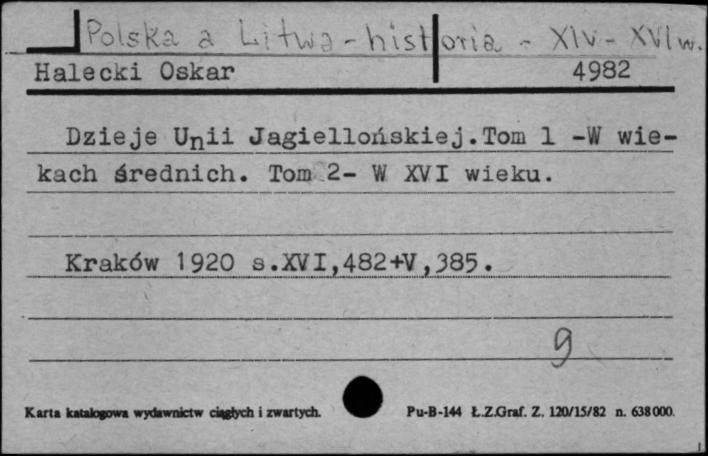 Polska a Litwa - historia - XIV - XVI w.
Halecki Oskar 4982
Dzieje Unii Jagiellońskiej.Tom 1 -W wie-
kach średnich. Tom 2- W XVI wieku.
Kraków 1920 s.XVI,482+V,385.
9
Karta katalogowa wydawnictw ciągłych i zwartych. Pu-B-144 Ł.Z.Graf. Z. 120/15/82 n. 638000.